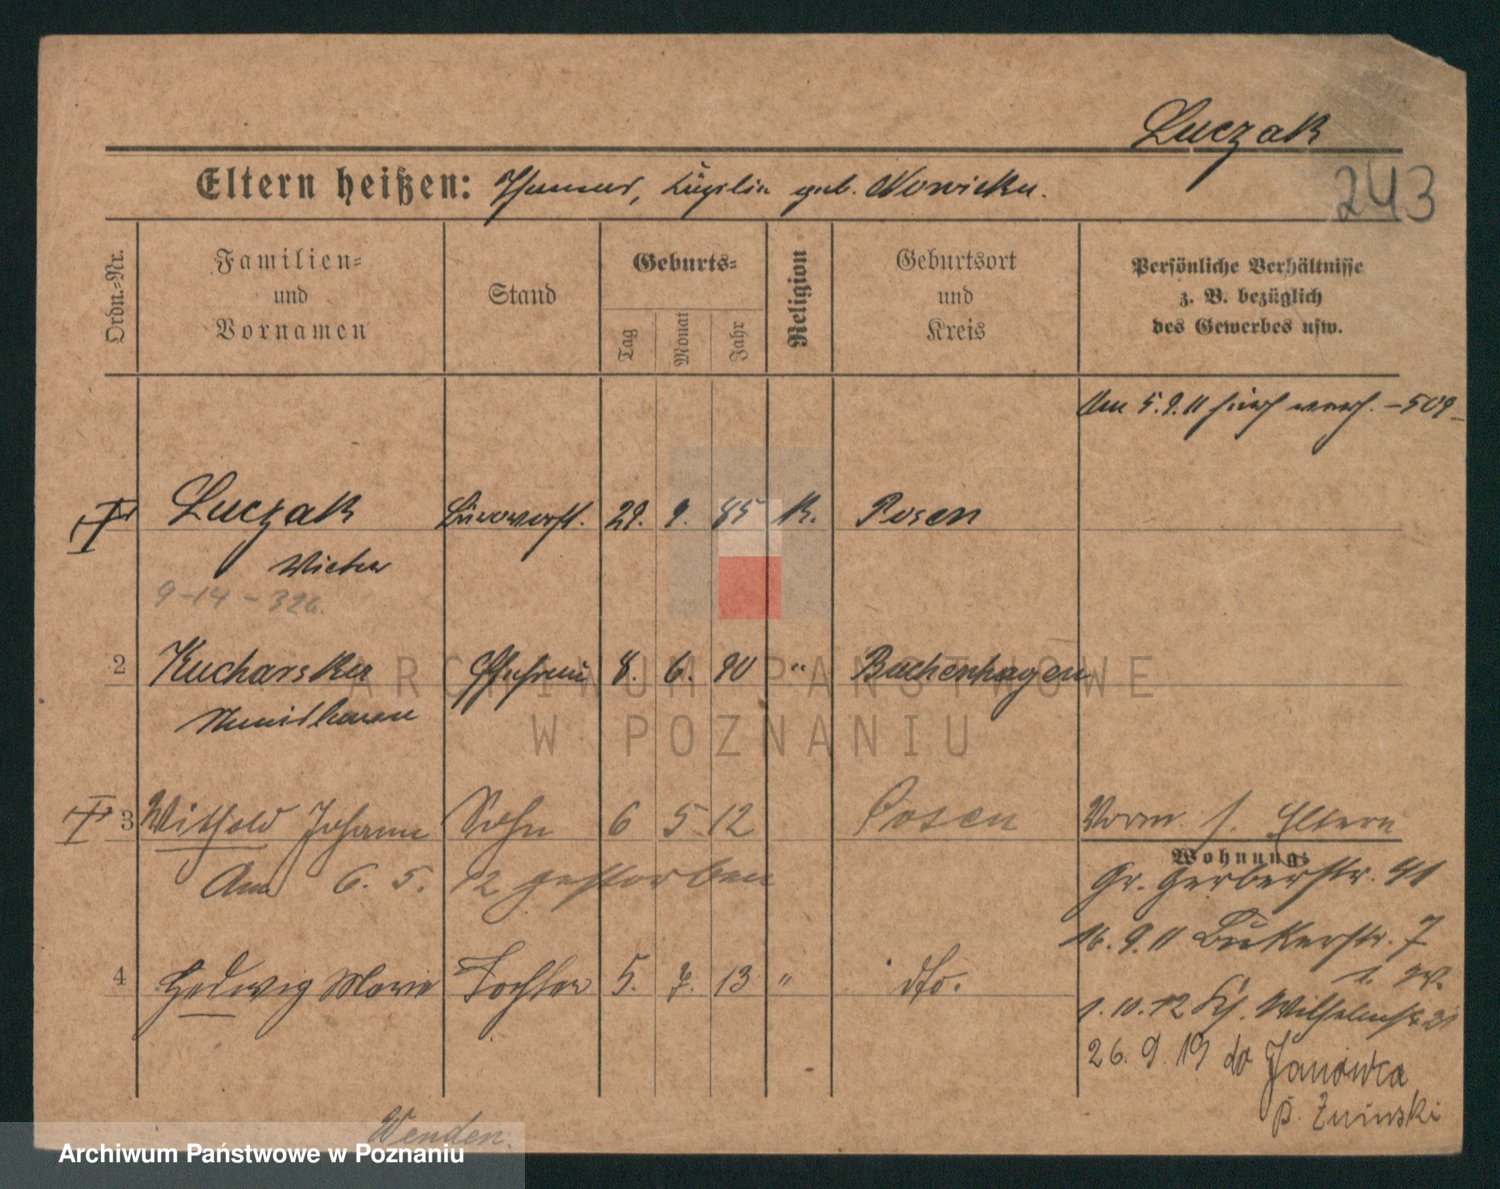 Luczak
243
Eltern heißen: geb. Nowicka.
Ordn.-Nr.
Familien-
und
Vornamen
Stand
Geburts-
Tag
Monat
Jahr
Religion
Geburtsort
und
Kreis
Persönliche Verhältnisse
z. B. bezüglich
des Gewerbes usw.
Am 5.9.11 – 509 –
Luczak 29. 9. 85 K. Posen
9-14-326.
2 Kucharska 8. 6. 90 " Buchenhagen
3 Withold Johann Sohn 6 5 12 Posen
Vorm. s. Eltern
Am 6. 5. 12 gestorben
Wohnung:
Gr. Gerberstr. 41
16. 9. 11 Bukerstr. 7
4 Hedwig Marie Tochter 5. 7. 13 " dto.
1. 10. 12
26. 9. 19 do Janówca
p. Żniński
Wenden.
ARCHIWUM PAŃSTWOWE
W POZNANIU
Archiwum Państwowe w Poznaniu